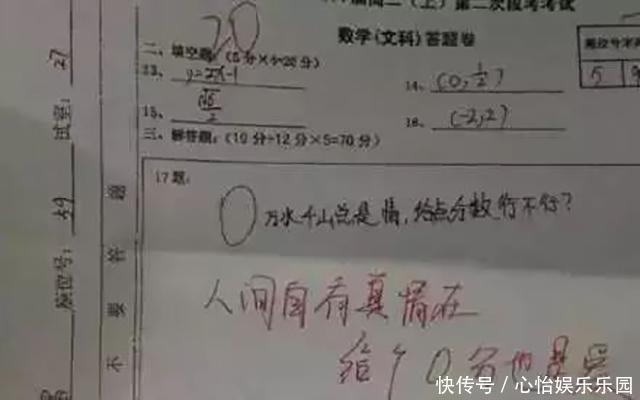 二(上)第二次段考考试
数学(文科)答题卷
20
二、填空题:(5分×4=20分)
13、y=2x-1
14、(0,1/2)
15、√5/2
16、(-2,2)
三、解答题:(10分+12分×5=70分)
17题:
0
万水千山总是情,给点分数行不行?
人间自有真情在
给个0分也是爱
试室:27
座位号:59
5 9
不要答题
快传号/心怡娱乐乐园